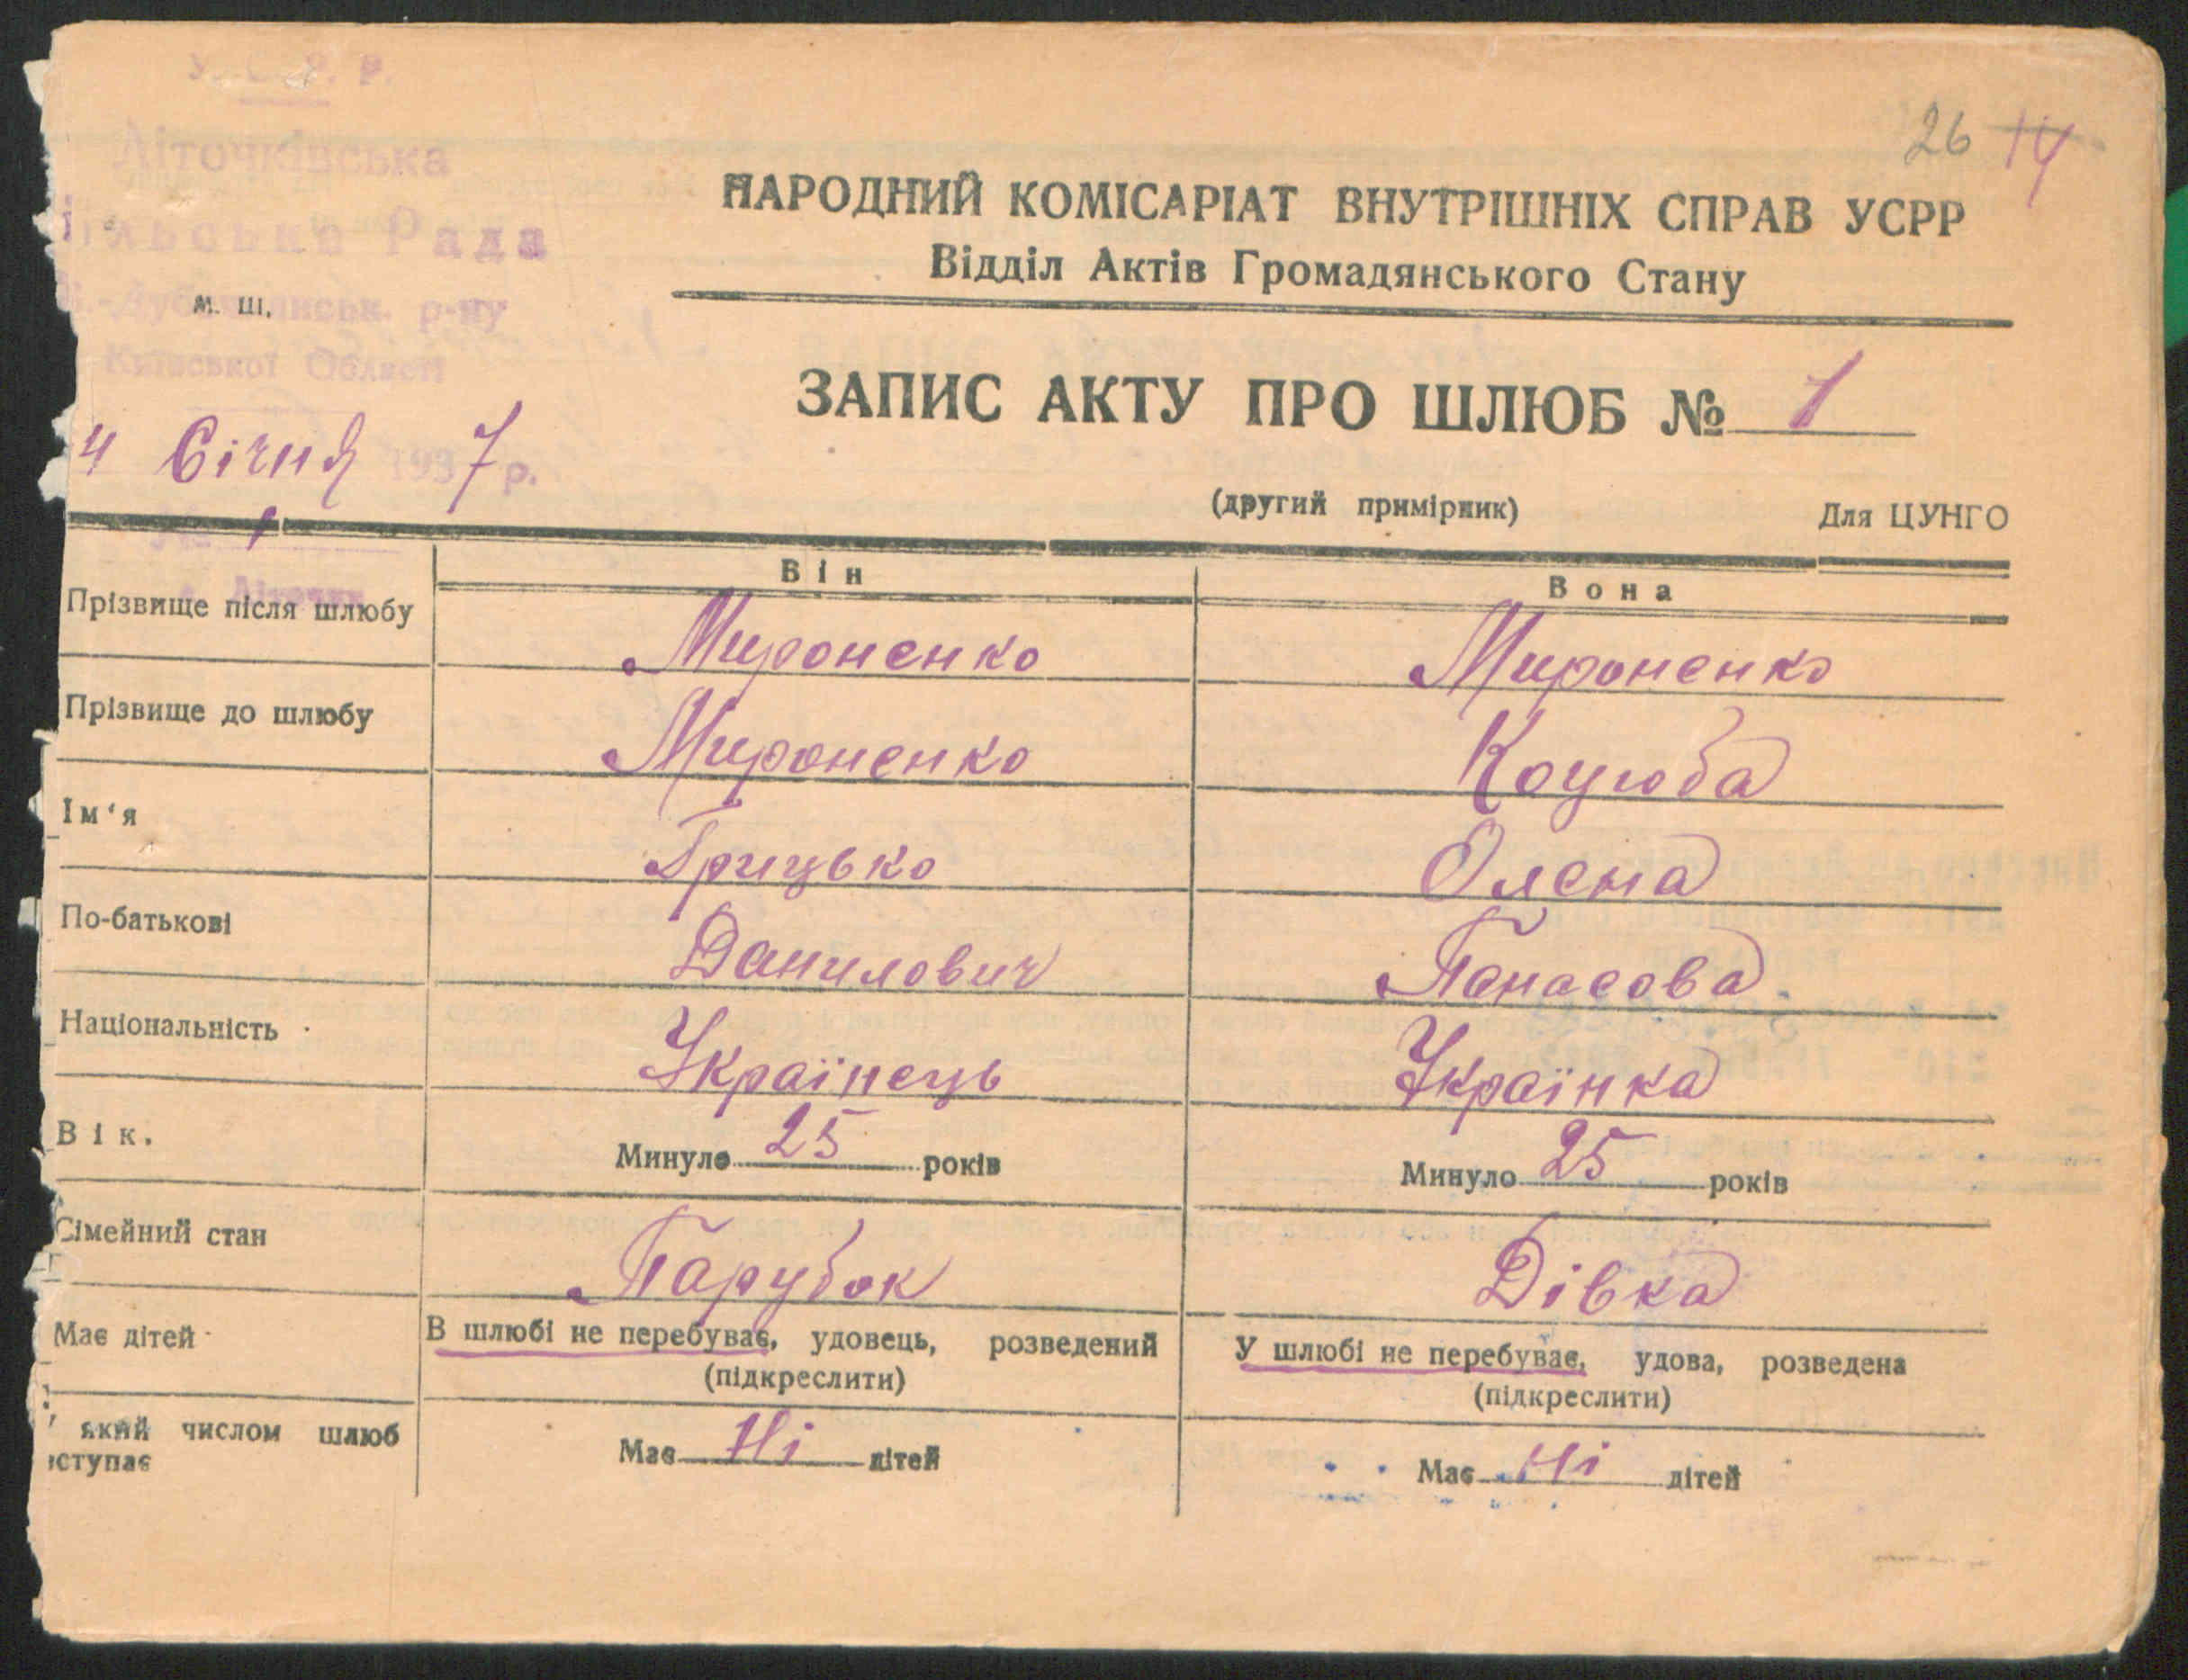 У. С. Р. Р.
Літочківська
Сільська Рада
р-ну
Київської Області
м. ш.
26 14
НАРОДНИЙ КОМІСАРІАТ ВНУТРІШНІХ СПРАВ УСРР
Відділ Актів Громадянського Стану
ЗАПИС АКТУ ПРО ШЛЮБ № 1
4 Січня 1937 р.
(другий примірник) Для ЦУНГО
№ 1
с. Літочки
Він Вона
Прізвище після шлюбу Мироненко Мироненко
Прізвище до шлюбу Мироненко Коцюба
Ім'я Грицько Олена
По-батькові Данилович Панасова
Національність Українець Українка
Вік. Минуло 25 років Минуло 25 років
Сімейний стан Парубок Дівка
Має дітей В шлюбі не перебуває, удовець, розведений У шлюбі не перебуває, удова, розведена
(підкреслити) (підкреслити)
який числом шлюб
вступає Має Ні дітей Має Ні дітей